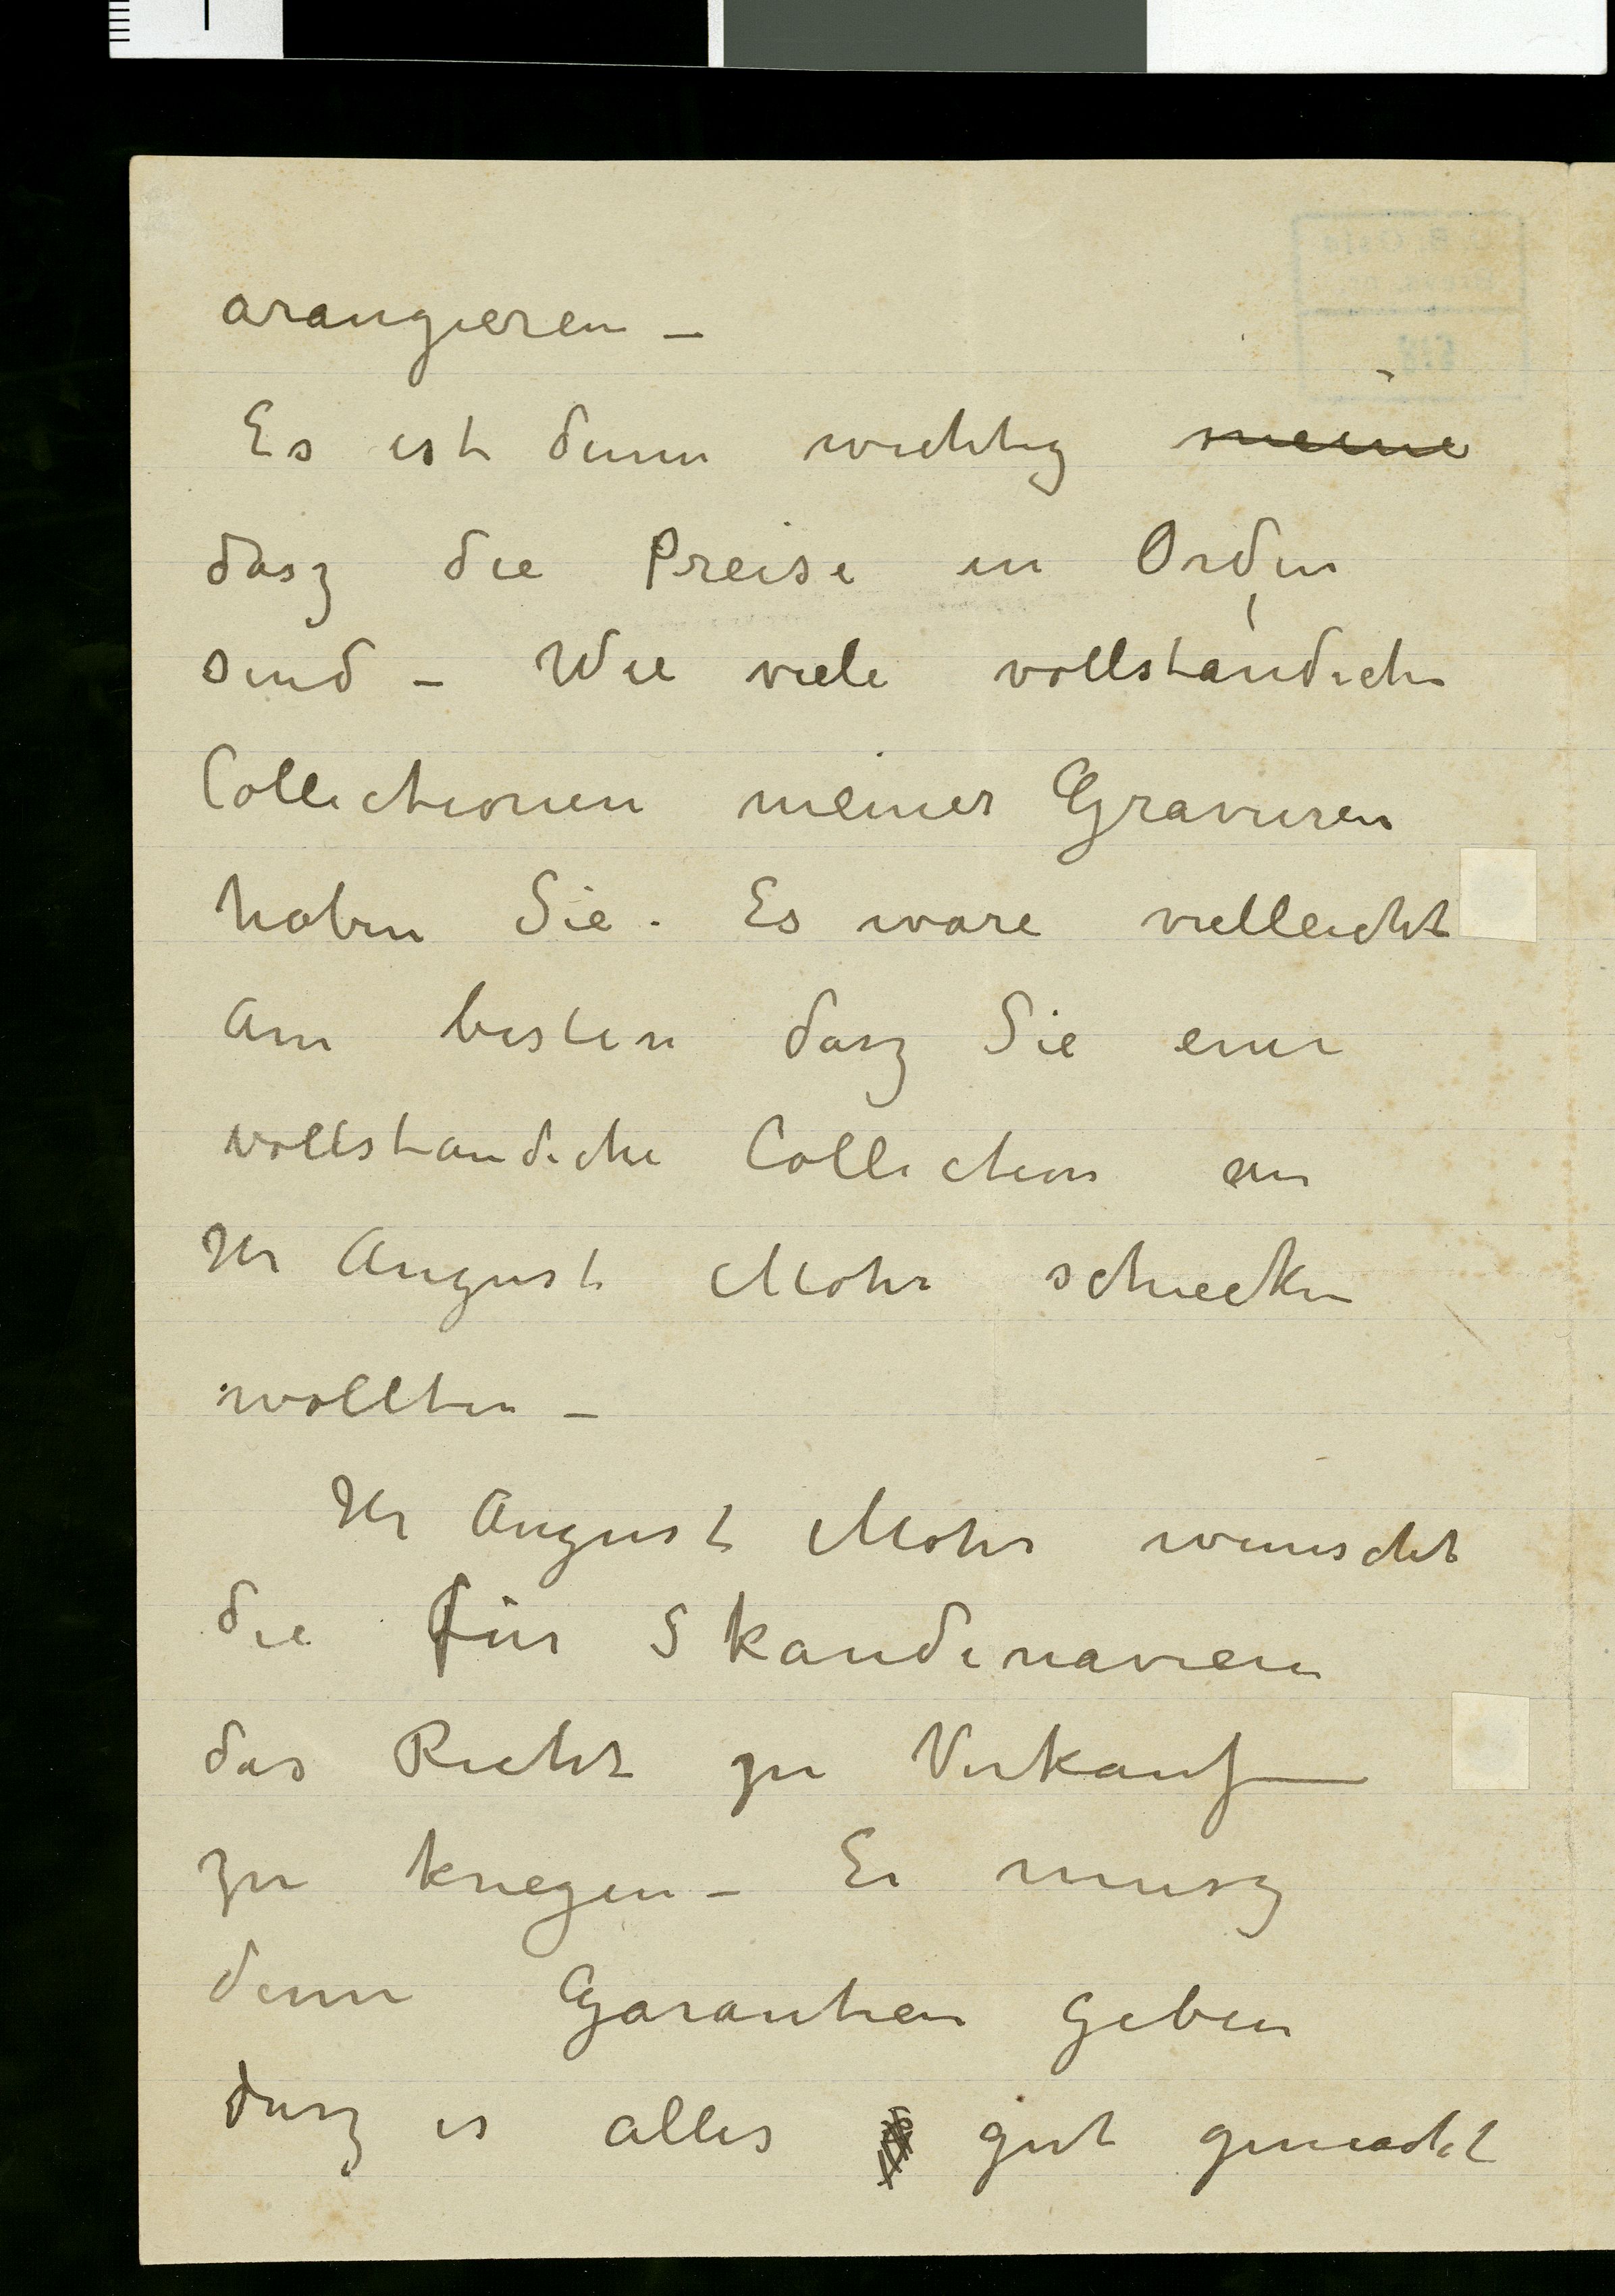 arangieren –
Es ist denn wichtig meine
dasz die Preise in Orden
sind – Wie viele vollständiche
Collectionen meiner Gravuren
haben Sie. Es ware vielleicht
am besten dasz Sie eine
vollstandiche Collection an
Hr August Mohr schiecken
wollten –
Hr August Mohr wunscht
die für Skandinavien
das Recht zu Verkauf
zu kriegen – Er musz
denn Garantien geben
dasz es alles gut gemacht